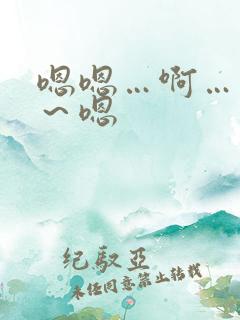 嗯嗯…啊…
～嗯
纪驭亞
未经同意禁止转载